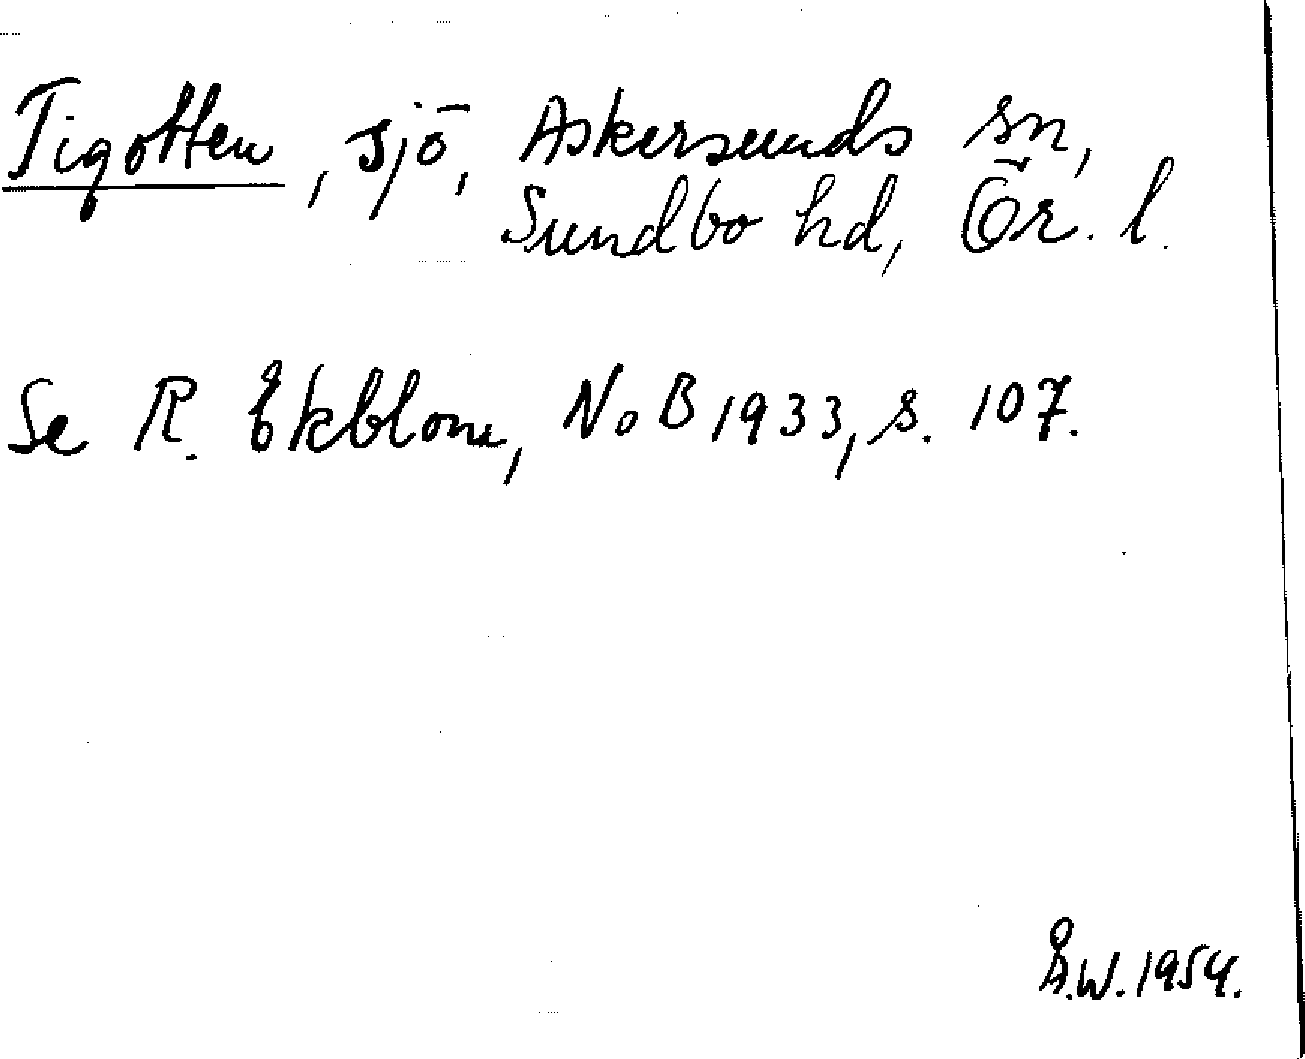 Tigotten, sjö, Askersunds sn,
Sundbo hd, Ör. l.
Se R. Ekblom, NoB 1933, s. 107.
Å.W. 1954.